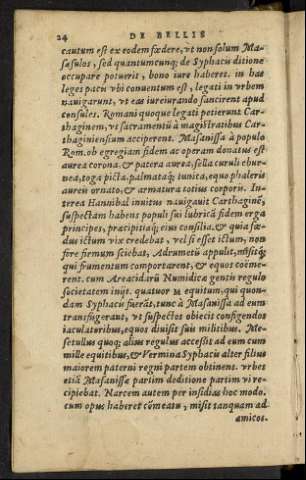 24 DE BELLIS
cautum est ex eodem fœdere, vt non solum Ma-
sæsulos, sed quantumcunq; de Syphacis ditione
occupare potuerit, bono iure haberet. in has
leges pacis vbi conuentum est, legati in vrbem
nauigarunt, vt eas iureiurando sancirent apud
consules. Romani quoque legati petierunt Car-
thaginem, vt sacramentū à magistratibus Car-
thaginiensium acciperent. Masanissa à populo
Rom. ob egregiam fidem ac operam donatus est
aurea corona, & patera aurea, sella curuli ebur-
nea, toga picta, palmataq; tunica, equo phaleris
aureis ornato, & armatura totius corporis. In-
terea Hannibal inuitus nauigauit Carthaginē,
suspectam habens populi sui lubricā fidem erga
principes, præcipitiaq; eius consilia, & quia fœ-
dus ictum vix credebat, vel si esset ictum, non
fore firmum sciebat, Adrumetū appulit, misitq;
qui frumentum comportarent, & equos coëme-
rent. cum Areacidarū Numidicæ gentis regulo
societatem inijt. quatuor M equitum, qui quon-
dam Syphacis fuerāt, tunc à Masanissa ad eum
transfugerant, vt suspectos obiecit configendos
iaculatoribus, equos diuisit suis militibus. Me-
setullus quoq; alius regulus accessit ad eum cum
mille equitibus, & Vermina Syphacis alter filius
maiorem paterni regni partem obtinens. vrbes
etiā Masanissæ partim deditione partim vi re-
cipiebat. Narcem autem per insidias hoc modo.
cum opus haberet cōmeatu, misit tanquam ad
amicos.